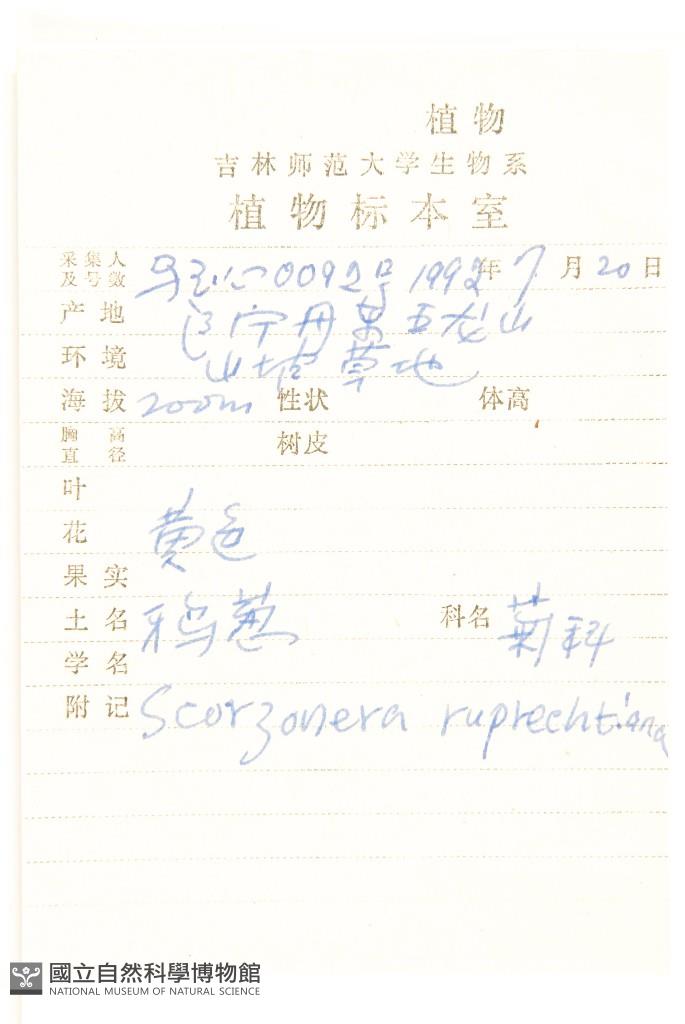 植物
吉林师范大学生物系
植物标本室
采集人及号数 0092号 1992年7月20日
产地 辽宁丹东五龙山
环境 山坡草地
海拔 200m 性状 体高
胸高直径 树皮
叶
花 黄色
果实
土名 鸦葱 科名 菊科
学名
附记 Scorzonera ruprechtiana
國立自然科學博物館
NATIONAL MUSEUM OF NATURAL SCIENCE